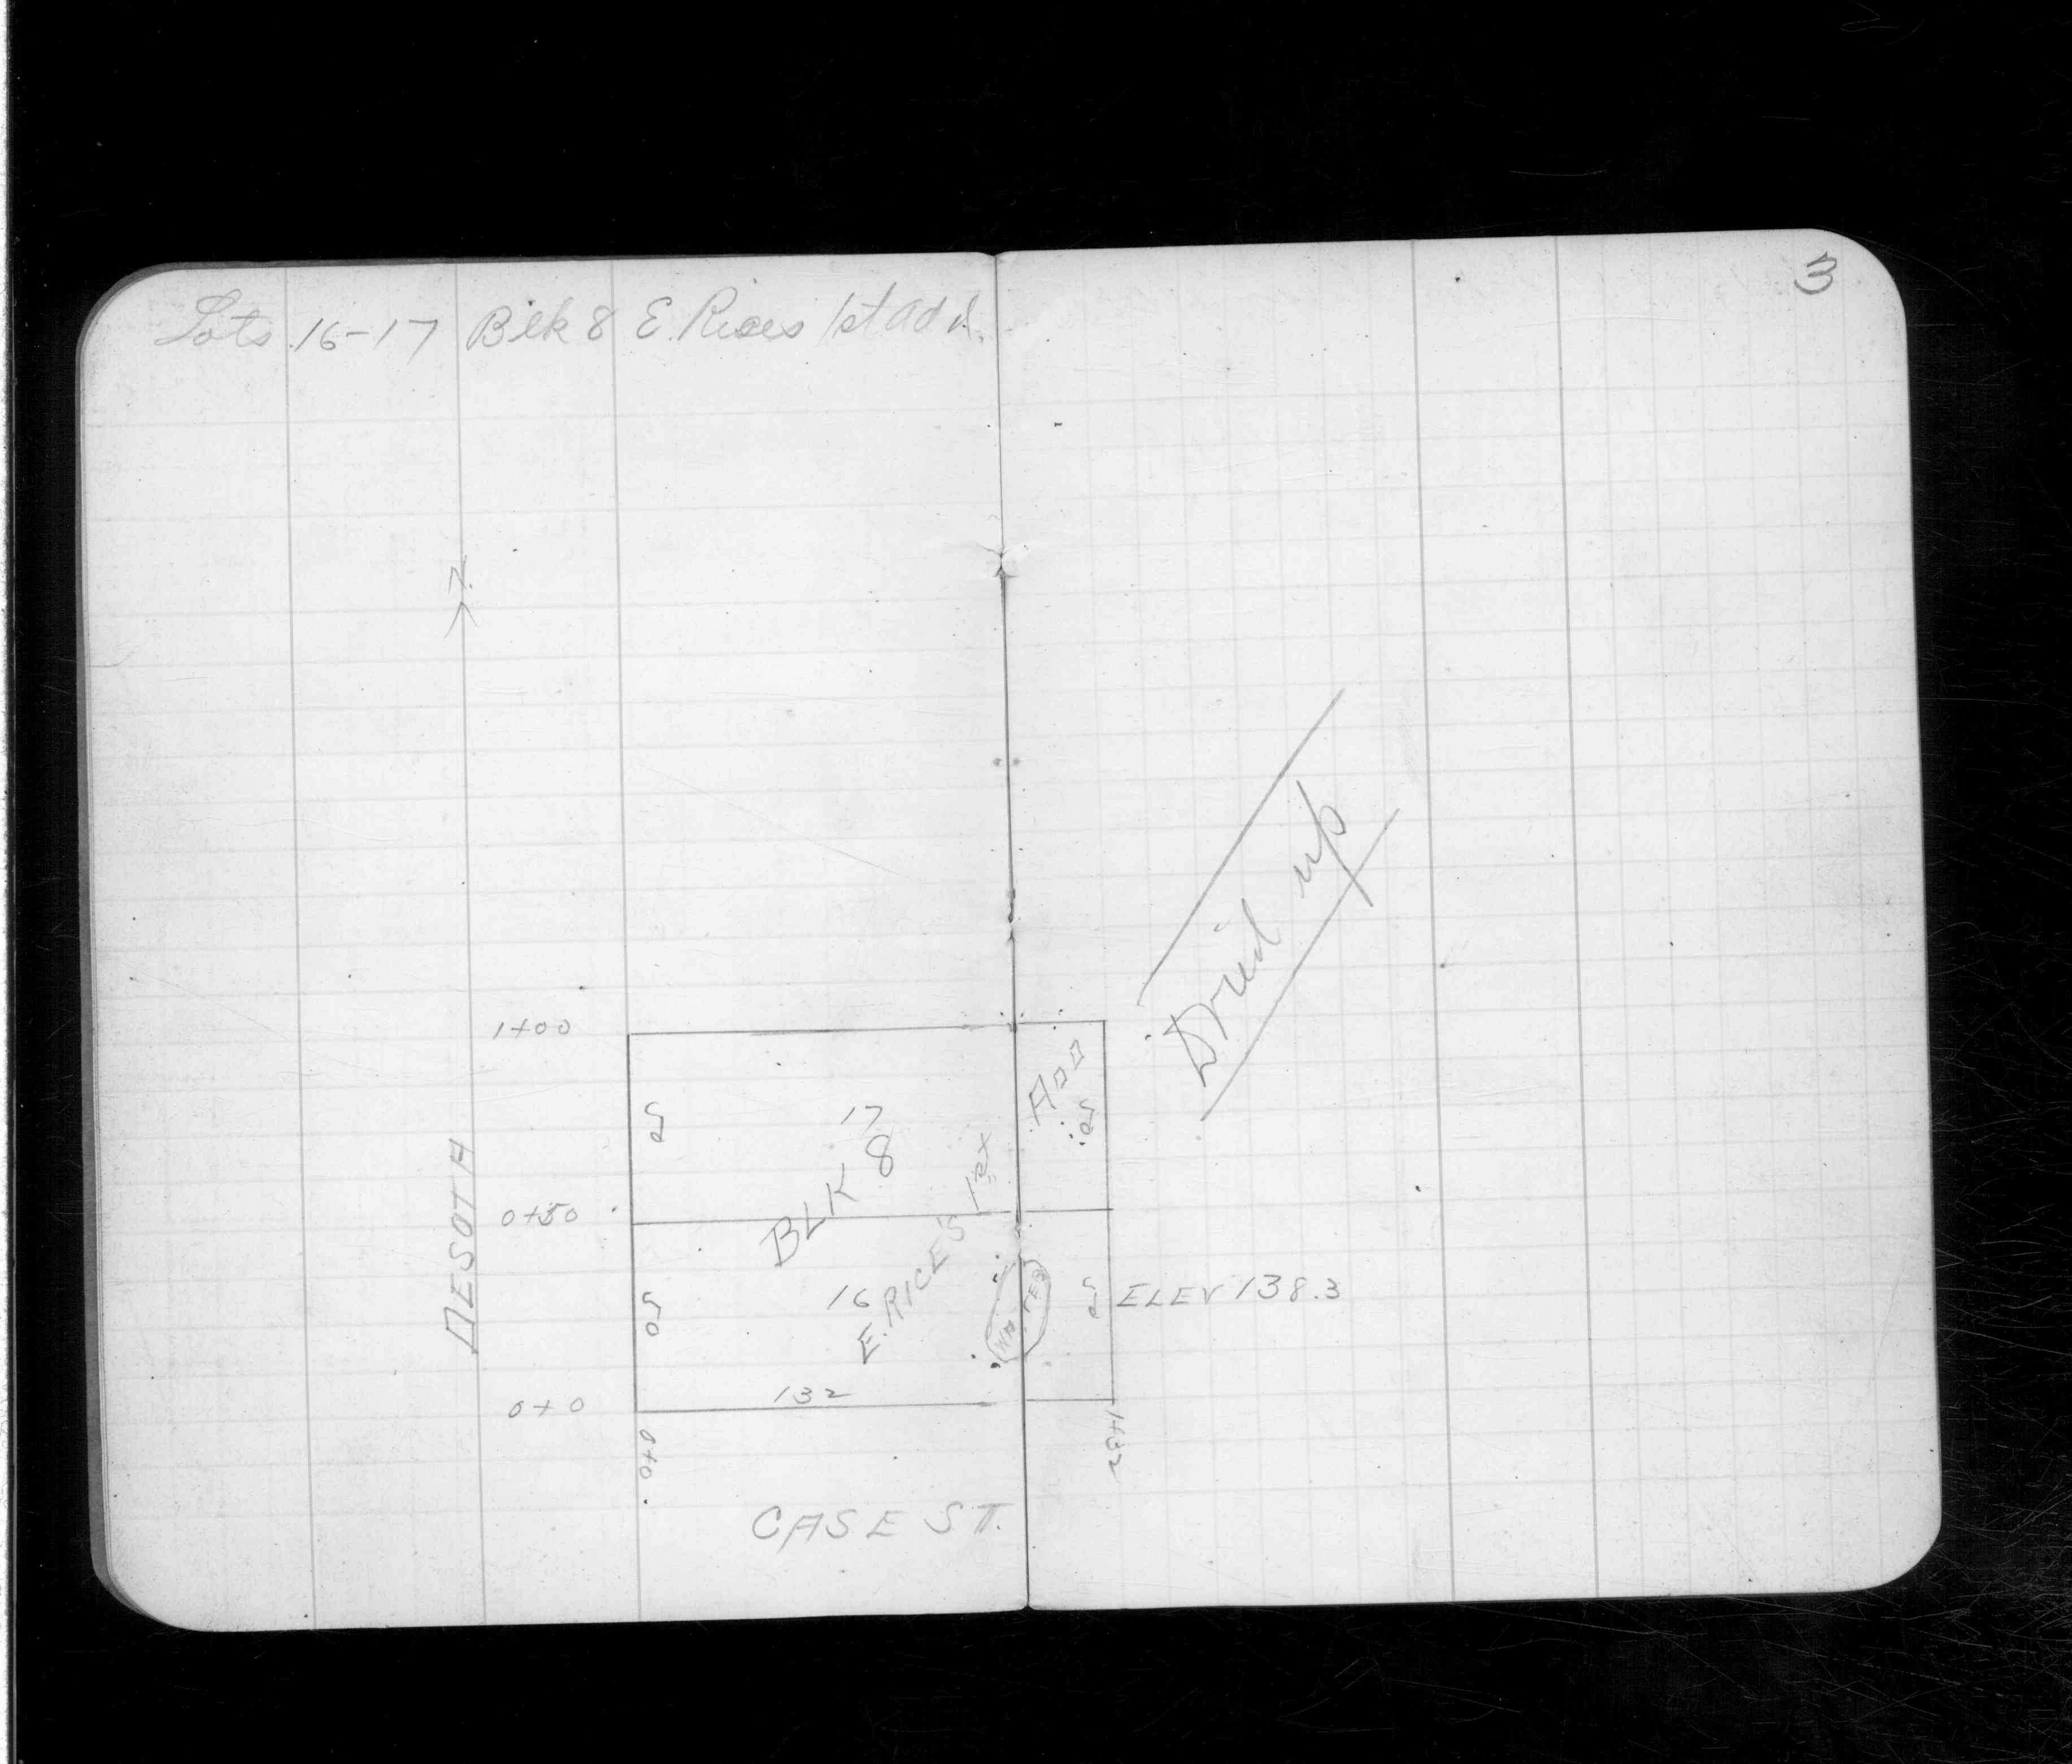 3
Lots 16-17 Blk 8 E. Rices 1st add.
N
Dried up
1+00
50
17
50
ADD
BLK 8
DESOTA
0+50
E. RICE'S 1ST
16
50
WATER
50
ELEV 138.3
0+0
132
0+0
1+32
CASE ST.